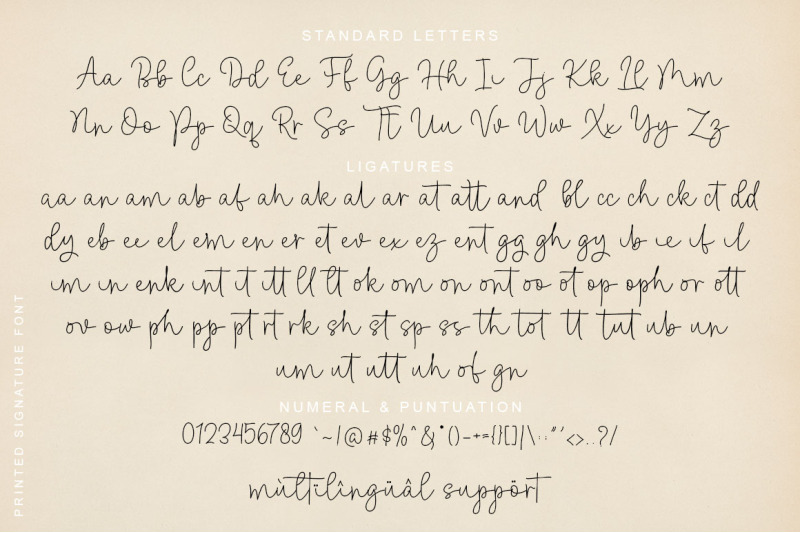 STANDARD LETTERS
Aa Bb Cc Dd Ee Ff Gg Hh Ii Jj Kk Ll Mm
Nn Oo Pp Qq Rr Ss Tt Uu Vv Ww Xx Yy Zz
LIGATURES
aa an am ab af ah ak al ar at att and bl cc ch ck ct dd
dy eb ee el em en er et ev ex ez ent gg gh gy ib ie if il
im in enk int it itt ll lt ok om on ont oo ot op oph or ott
ov ow ph pp pt rt rk sh st sp ss th tot tt tut ub un
um ut utt uh of gn
NUMERAL & PUNTUATION
0123456789 `~/@#$%^&*()-+={}[]|\:;"'<>,.?/
mùltïlîngüâl suppört
PRINTED SIGNATURE FONT